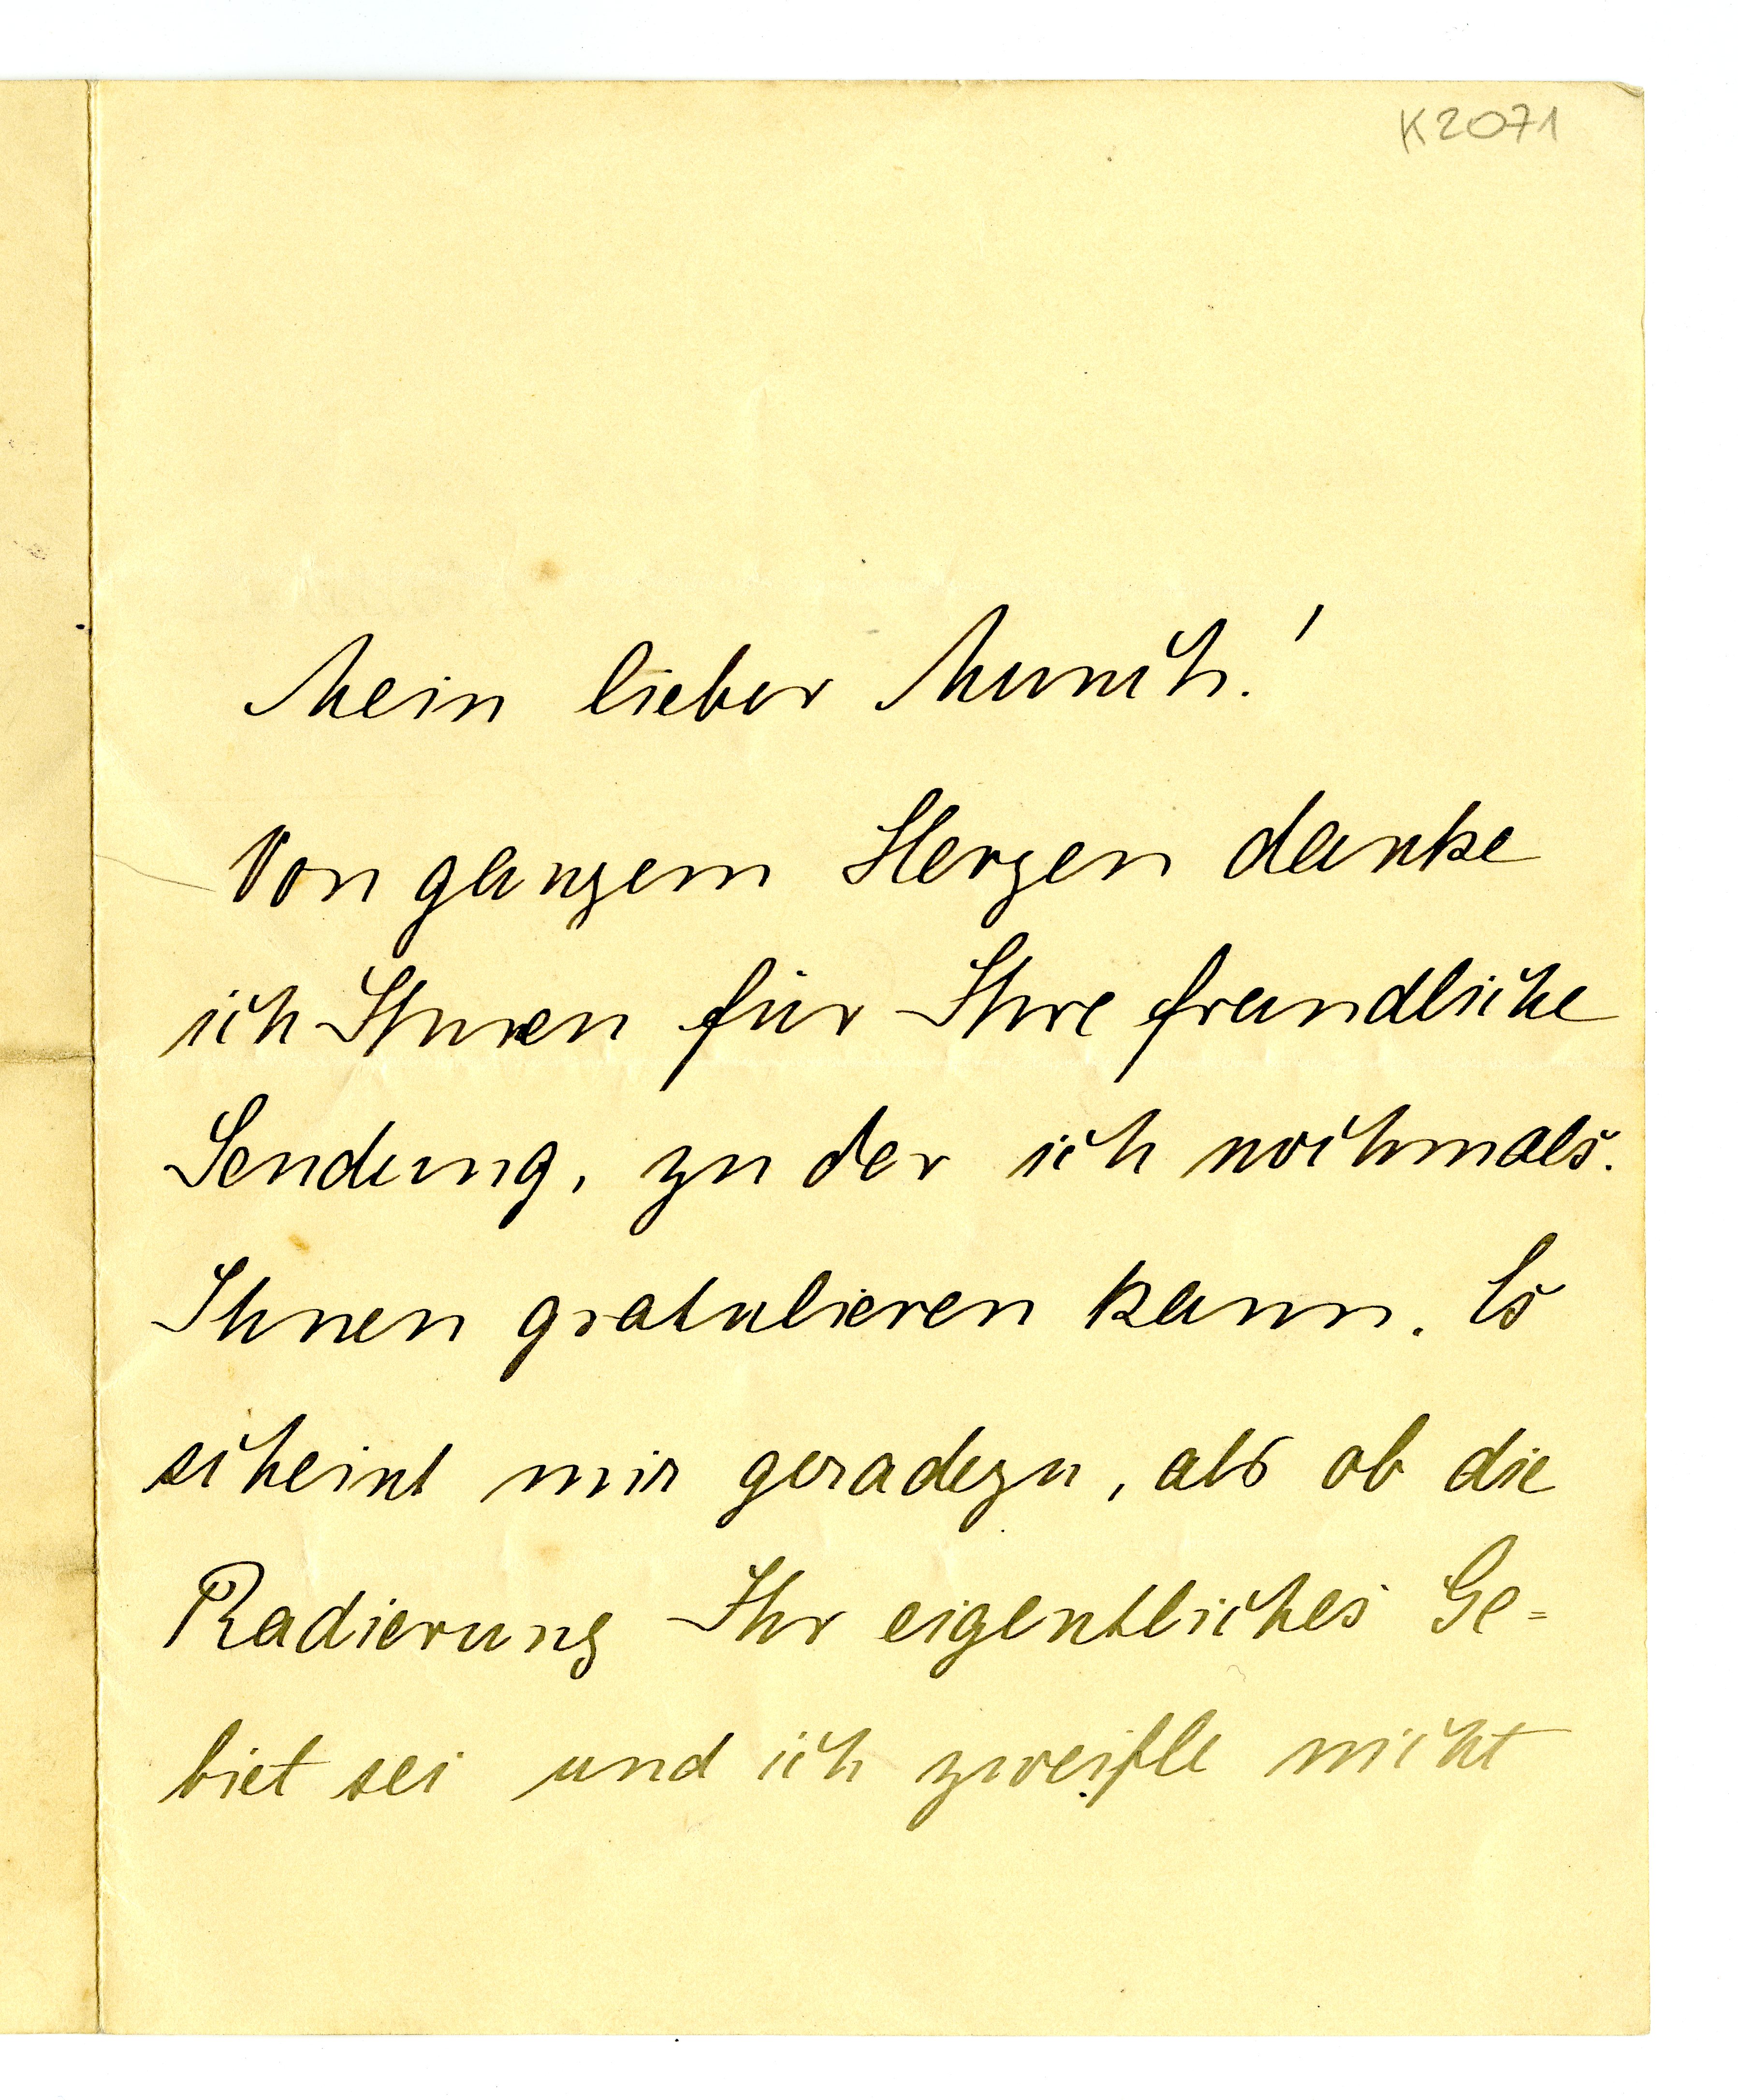 K2071
Mein lieber Munch!
Von ganzem Herzen danke
ich Ihnen für Ihre freundliche
Sendung, zu der ich nochmals.
Ihnen gratulieren kann. Es
scheint mir geradezu, als ob die
Radierung Ihr eigentliches Ge=
biet sei und ich zweifle nicht